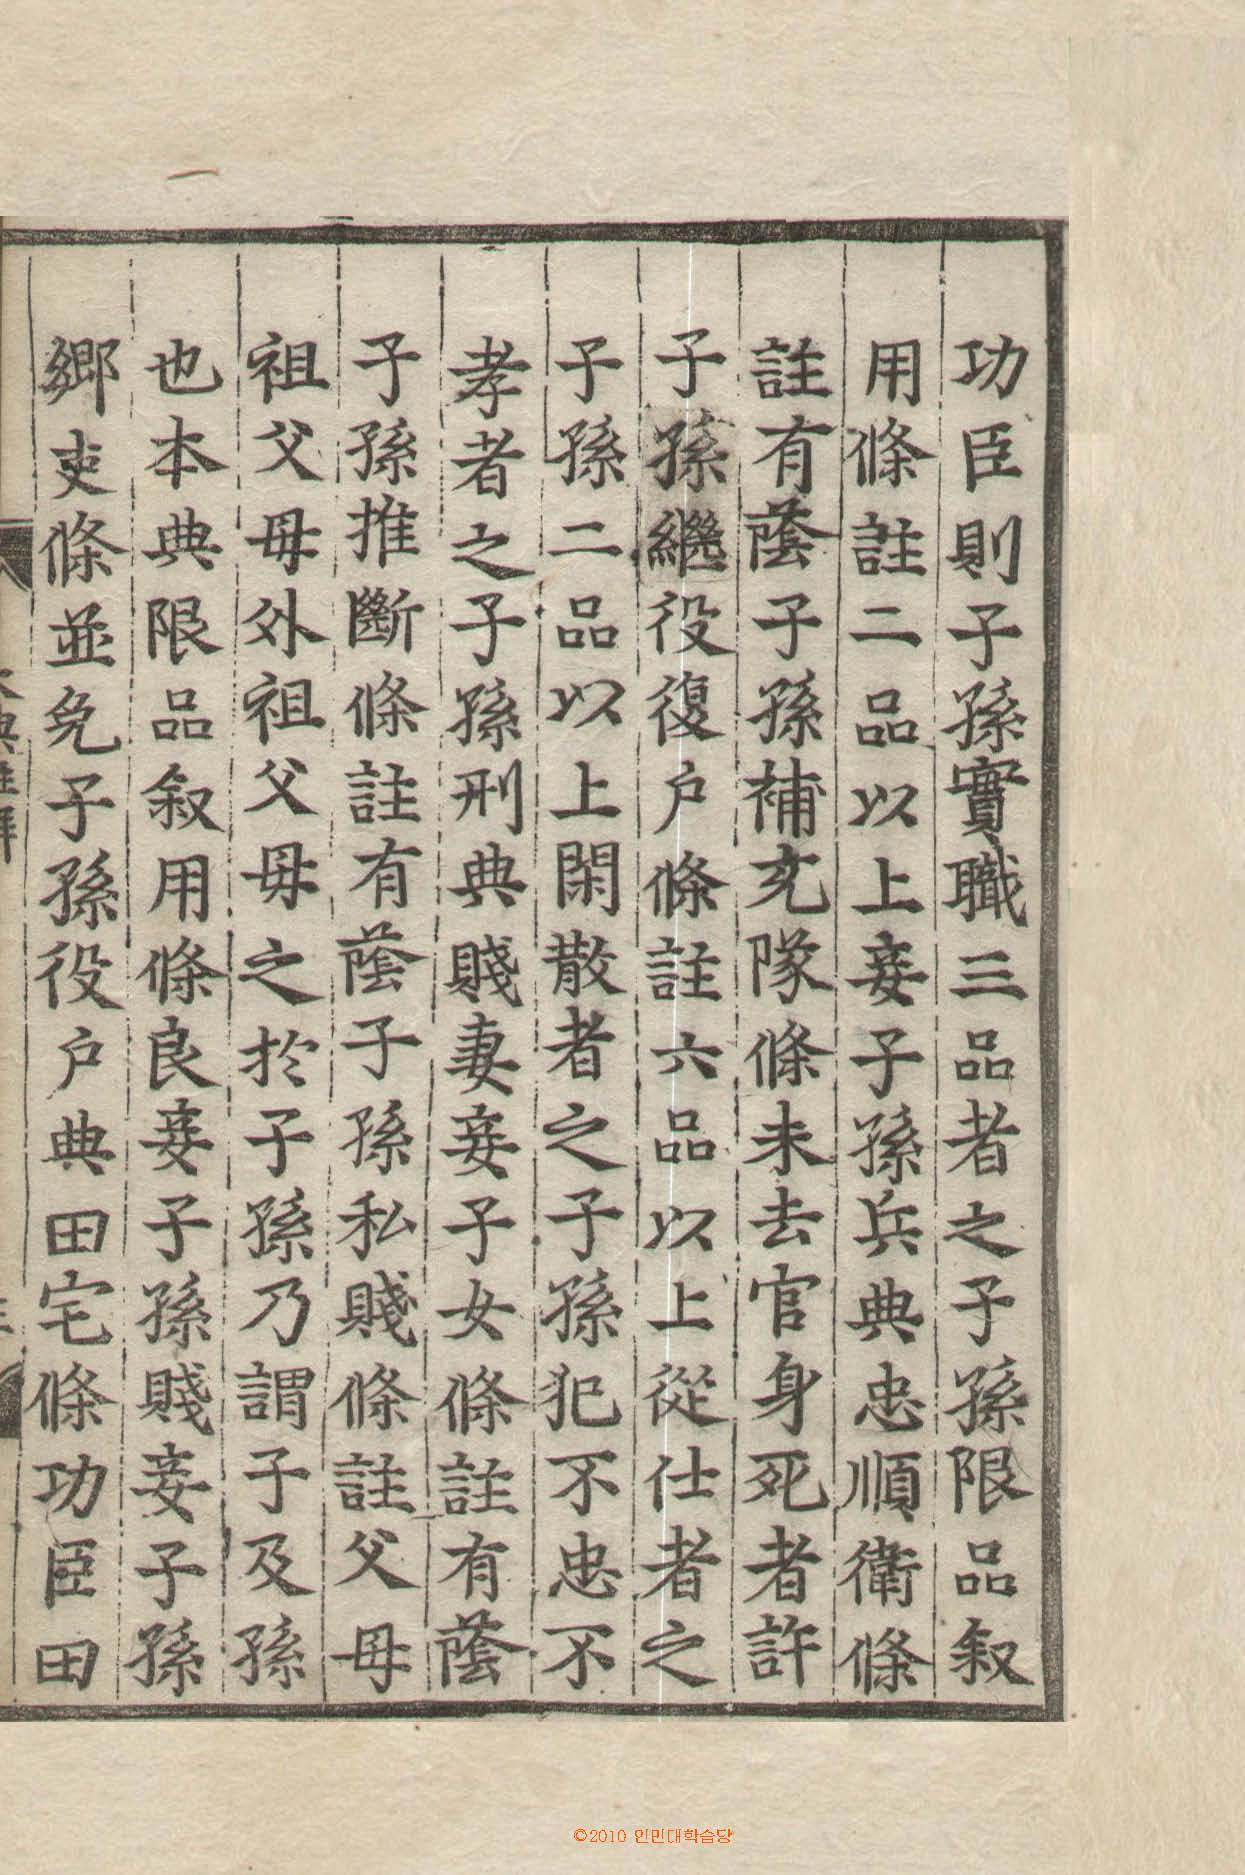 功臣則子孫實職三品者之子孫限品叙
用條註二品以上妾子孫兵典忠順衛條
註有蔭子孫補充隊條未去官身死者許
子孫繼役復户條註六品以上從仕者之
子孫二品以上閑散者之子孫犯不忠不
孝者之子孫刑典賤妻妾子女條註有蔭
子孫推斷條註有蔭子孫私賤條註父母
祖父母外祖父母之於子孫乃謂子及孫
也本典限品叙用條良妾子孫賤妾子孫
鄉吏條並免子孫役户典田宅條功臣田
©2010 인민대학습당